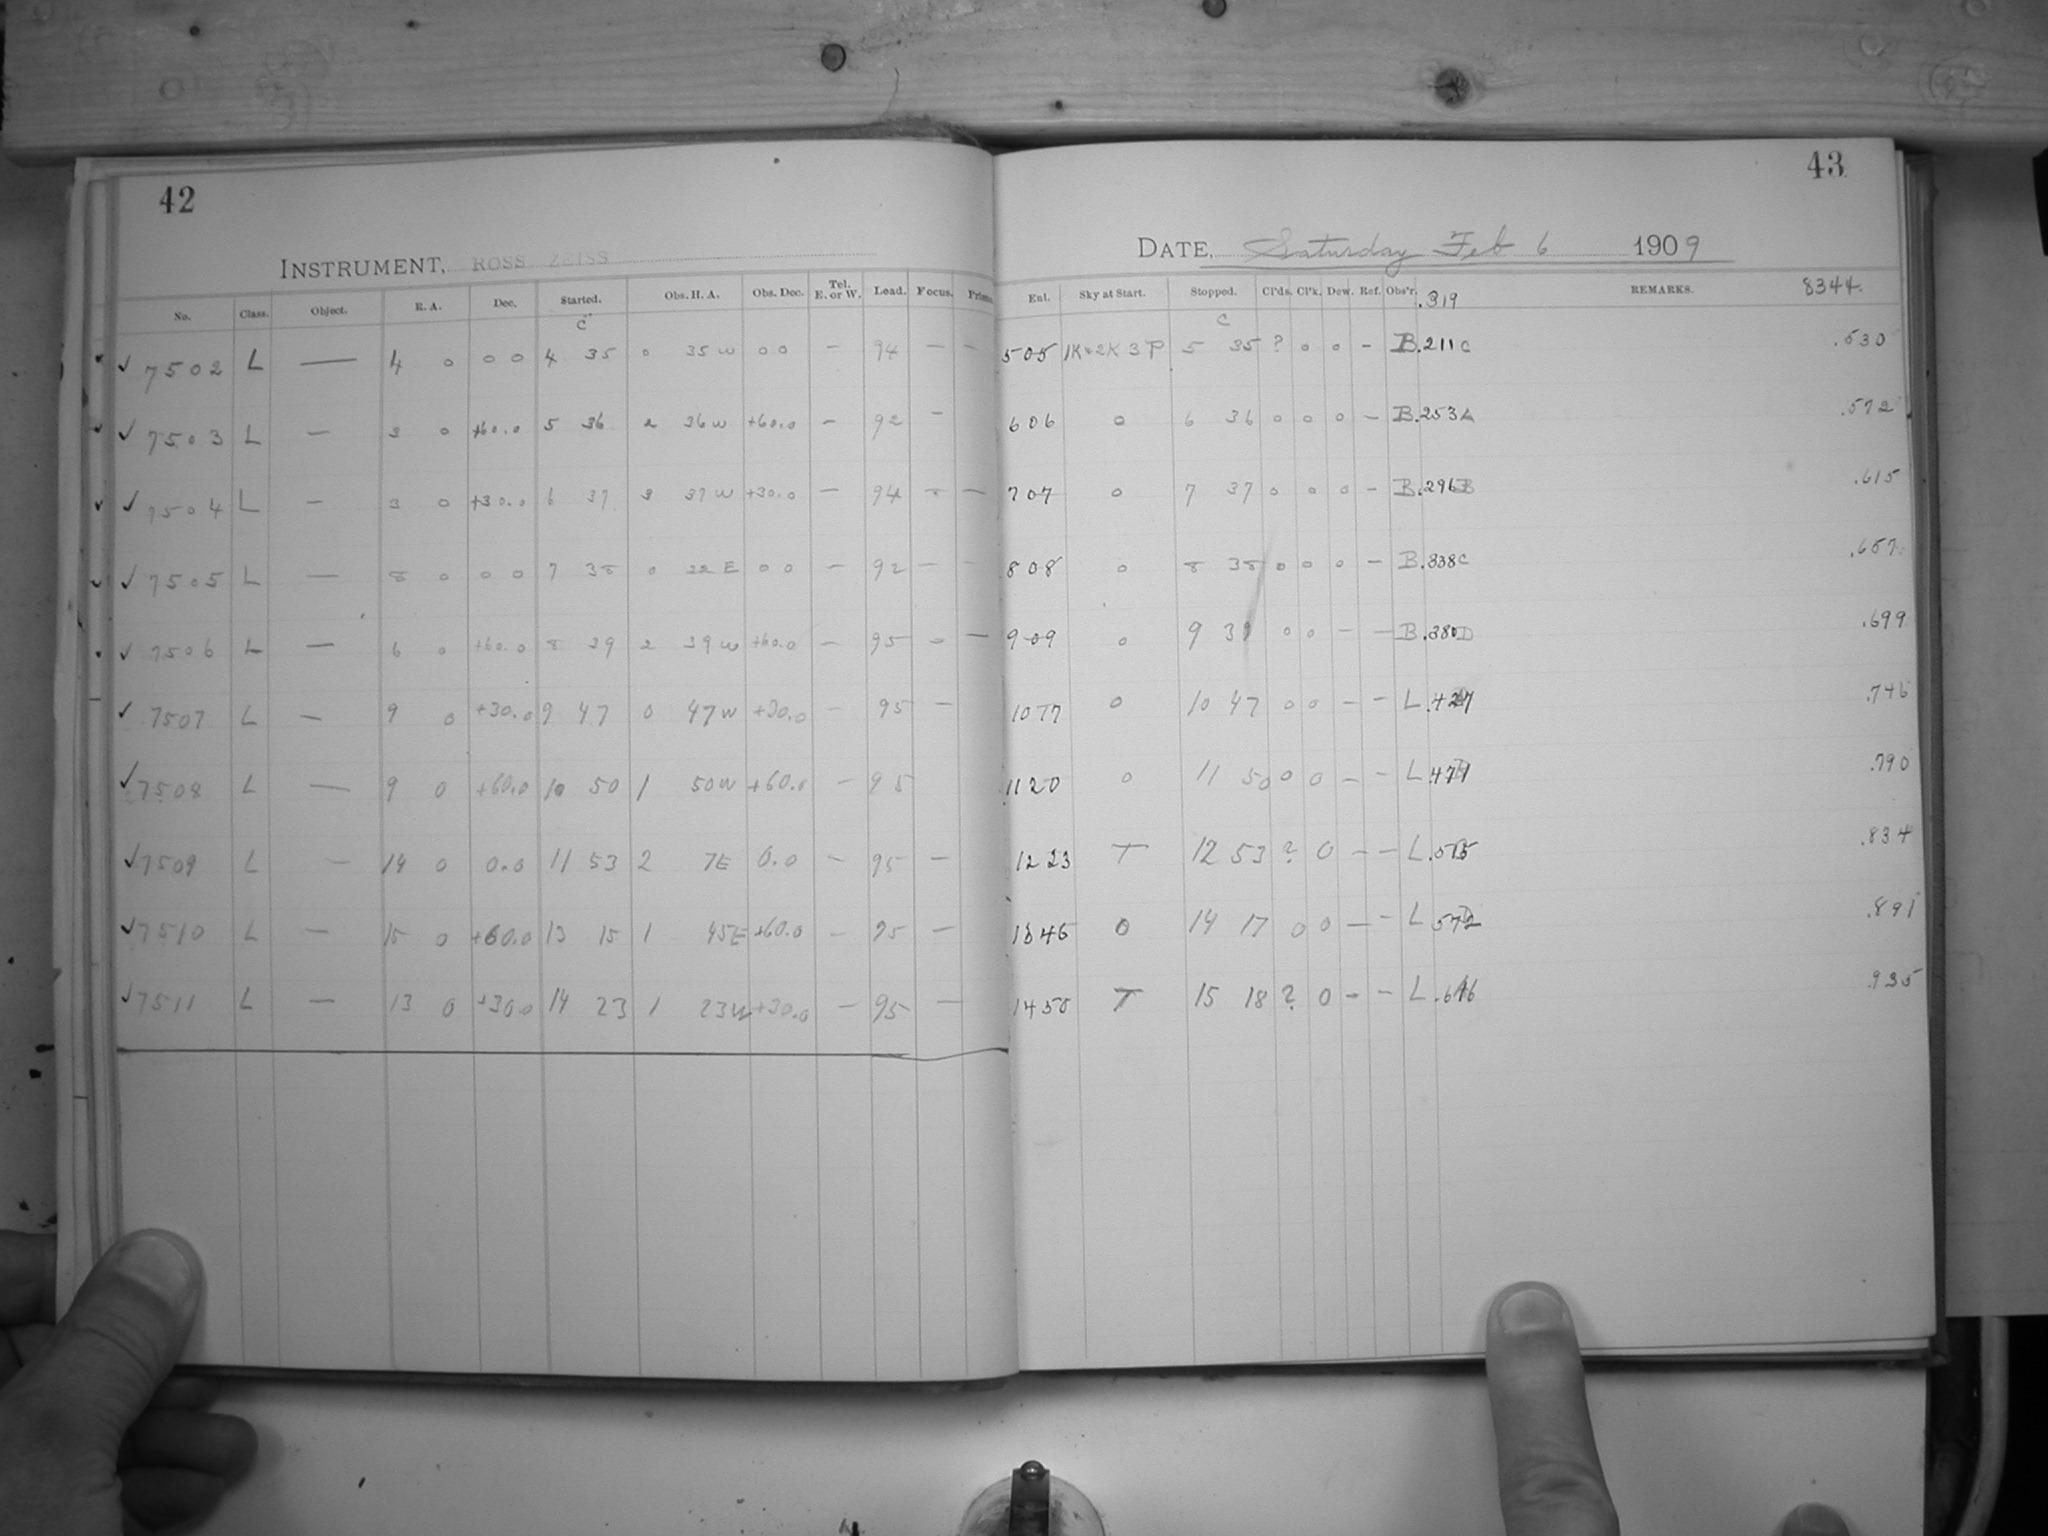 42
INSTRUMENT, ROSS ZEISS
No. Class. Object. R. A. Dec. Started. Obs. H. A. Obs. Dec. Tel. E. or W. Lead. Focus. Prisms
c
7502 L — 4 0 0 0 4 35 0 35 W 0 0 — 94 — —
7503 L — 3 0 +60.0 5 36 2 36 W +60.0 — 92 —
7504 L — 3 0 +30.0 6 37 3 37 W +30.0 — 94 — —
7505 L — 8 0 0 0 7 38 0 22 E 0 0 — 92 — —
7506 L — 6 0 +60.0 8 39 2 39 W +60.0 — 95 — —
7507 L — 9 0 +30.0 9 47 0 47 W +30.0 — 95 —
7508 L — 9 0 +60.0 10 50 1 50 W +60.0 — 95
7509 L — 14 0 0.0 11 53 2 7 E 0.0 — 95 —
7510 L — 15 0 +60.0 13 15 1 45 E +60.0 — 95 —
7511 L — 13 0 +30.0 14 23 1 23 W +30.0 — 95 —
43
DATE, Saturday Feb 6 1909
Ent. Sky at Start. Stopped. Cl'ds. Cl'k. Dew. Ref. Obs'r. .319 REMARKS. 8344.
c
505 3P 5 35 ? 0 0 — B .211 C .530
606 0 6 36 0 0 0 — B .253 A .572
707 0 7 37 0 0 0 — B .296 B .615
808 0 8 38 0 0 0 — B .338 C .657
909 0 9 39 0 0 — — B .380 D .699
1017 0 10 47 0 0 — — L .427 .746
1120 0 11 50 0 0 — — L .471 .790
1223 T 12 53 ? 0 — — L .834
1346 0 14 17 0 0 — — L .572 .891
1450 T 15 18 ? 0 — — L .616 .935